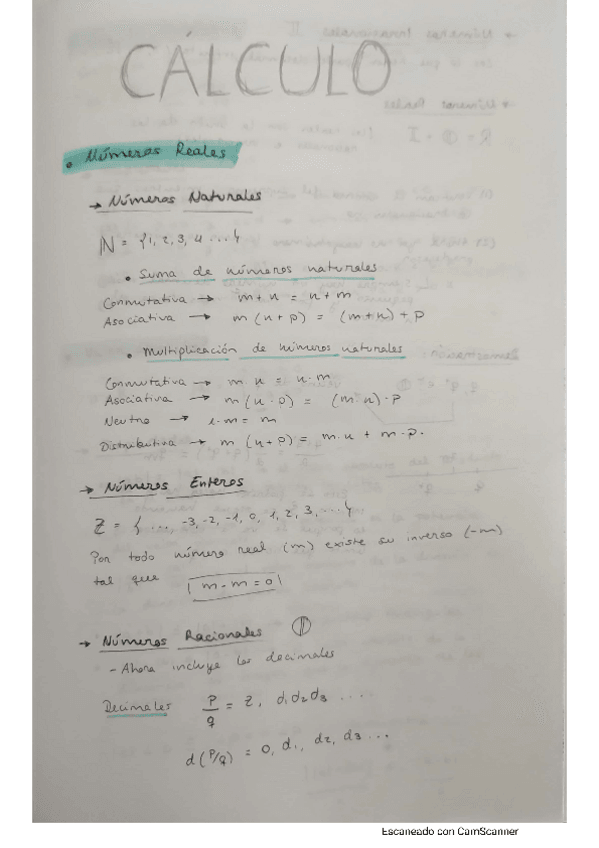 CÁLCULO
• Números Reales
→ Números Naturales
N = {1, 2, 3, 4 ...}
• Suma de números naturales
Conmutativa → m + n = n + m
Asociativa → m (n + p) = (m + n) + p
• Multiplicación de números naturales
Conmutativa → m · n = n · m
Asociativa → m (n · p) = (m · n) · p
Neutro → 1 · m = m
Distributiva → m (n + p) = m · n + m · p.
→ Números Enteros
Z = { ..., -3, -2, -1, 0, 1, 2, 3, ...}
Por todo número real (m) existe su inverso (-m)
tal que | m - m = 0 |
→ Números Racionales
- Ahora incluye los decimales
Decimales p/q = z, d₁d₂d₃ ....
d (P/Q) = 0, d₁, d₂, d₃ ...
Escaneado con CamScanner